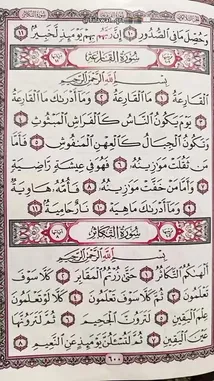 وَحُصِّلَ مَا فِي الصُّدُورِ ١٠ إِنَّ رَبَّهُم بِهِمْ يَوْمَئِذٍ لَّخَبِيرٌ ١١
سُورَةُ القَارِعَةِ
بِسْمِ اللَّهِ الرَّحْمَٰنِ الرَّحِيمِ
الْقَارِعَةُ ١ مَا الْقَارِعَةُ ٢ وَمَا أَدْرَىٰكَ مَا الْقَارِعَةُ
٣ يَوْمَ يَكُونُ النَّاسُ كَالْفَرَاشِ الْمَبْثُوثِ ٤
وَتَكُونُ الْجِبَالُ كَالْعِهْنِ الْمَنفُوشِ ٥ فَأَمَّا
مَن ثَقُلَتْ مَوَٰزِينُهُ ٦ فَهُوَ فِي عِيشَةٍ رَّاضِيَةٍ
٧ وَأَمَّا مَنْ خَفَّتْ مَوَٰزِينُهُ ٨ فَأُمُّهُ هَاوِيَةٌ
٩ وَمَا أَدْرَىٰكَ مَا هِيَهْ ١٠ نَارٌ حَامِيَةٌ ١١
سُورَةُ التَّكَاثُرِ
بِسْمِ اللَّهِ الرَّحْمَٰنِ الرَّحِيمِ
أَلْهَىٰكُمُ التَّكَاثُرُ ١ حَتَّىٰ زُرْتُمُ الْمَقَابِرَ ٢ كَلَّا سَوْفَ
تَعْلَمُونَ ٣ ثُمَّ كَلَّا سَوْفَ تَعْلَمُونَ ٤ كَلَّا لَوْ تَعْلَمُونَ
عِلْمَ الْيَقِينِ ٥ لَتَرَوُنَّ الْجَحِيمَ ٦ ثُمَّ لَتَرَوُنَّهَا
عَيْنَ الْيَقِينِ ٧ ثُمَّ لَتُسْأَلُنَّ يَوْمَئِذٍ عَنِ النَّعِيمِ ٨
٦٠٠